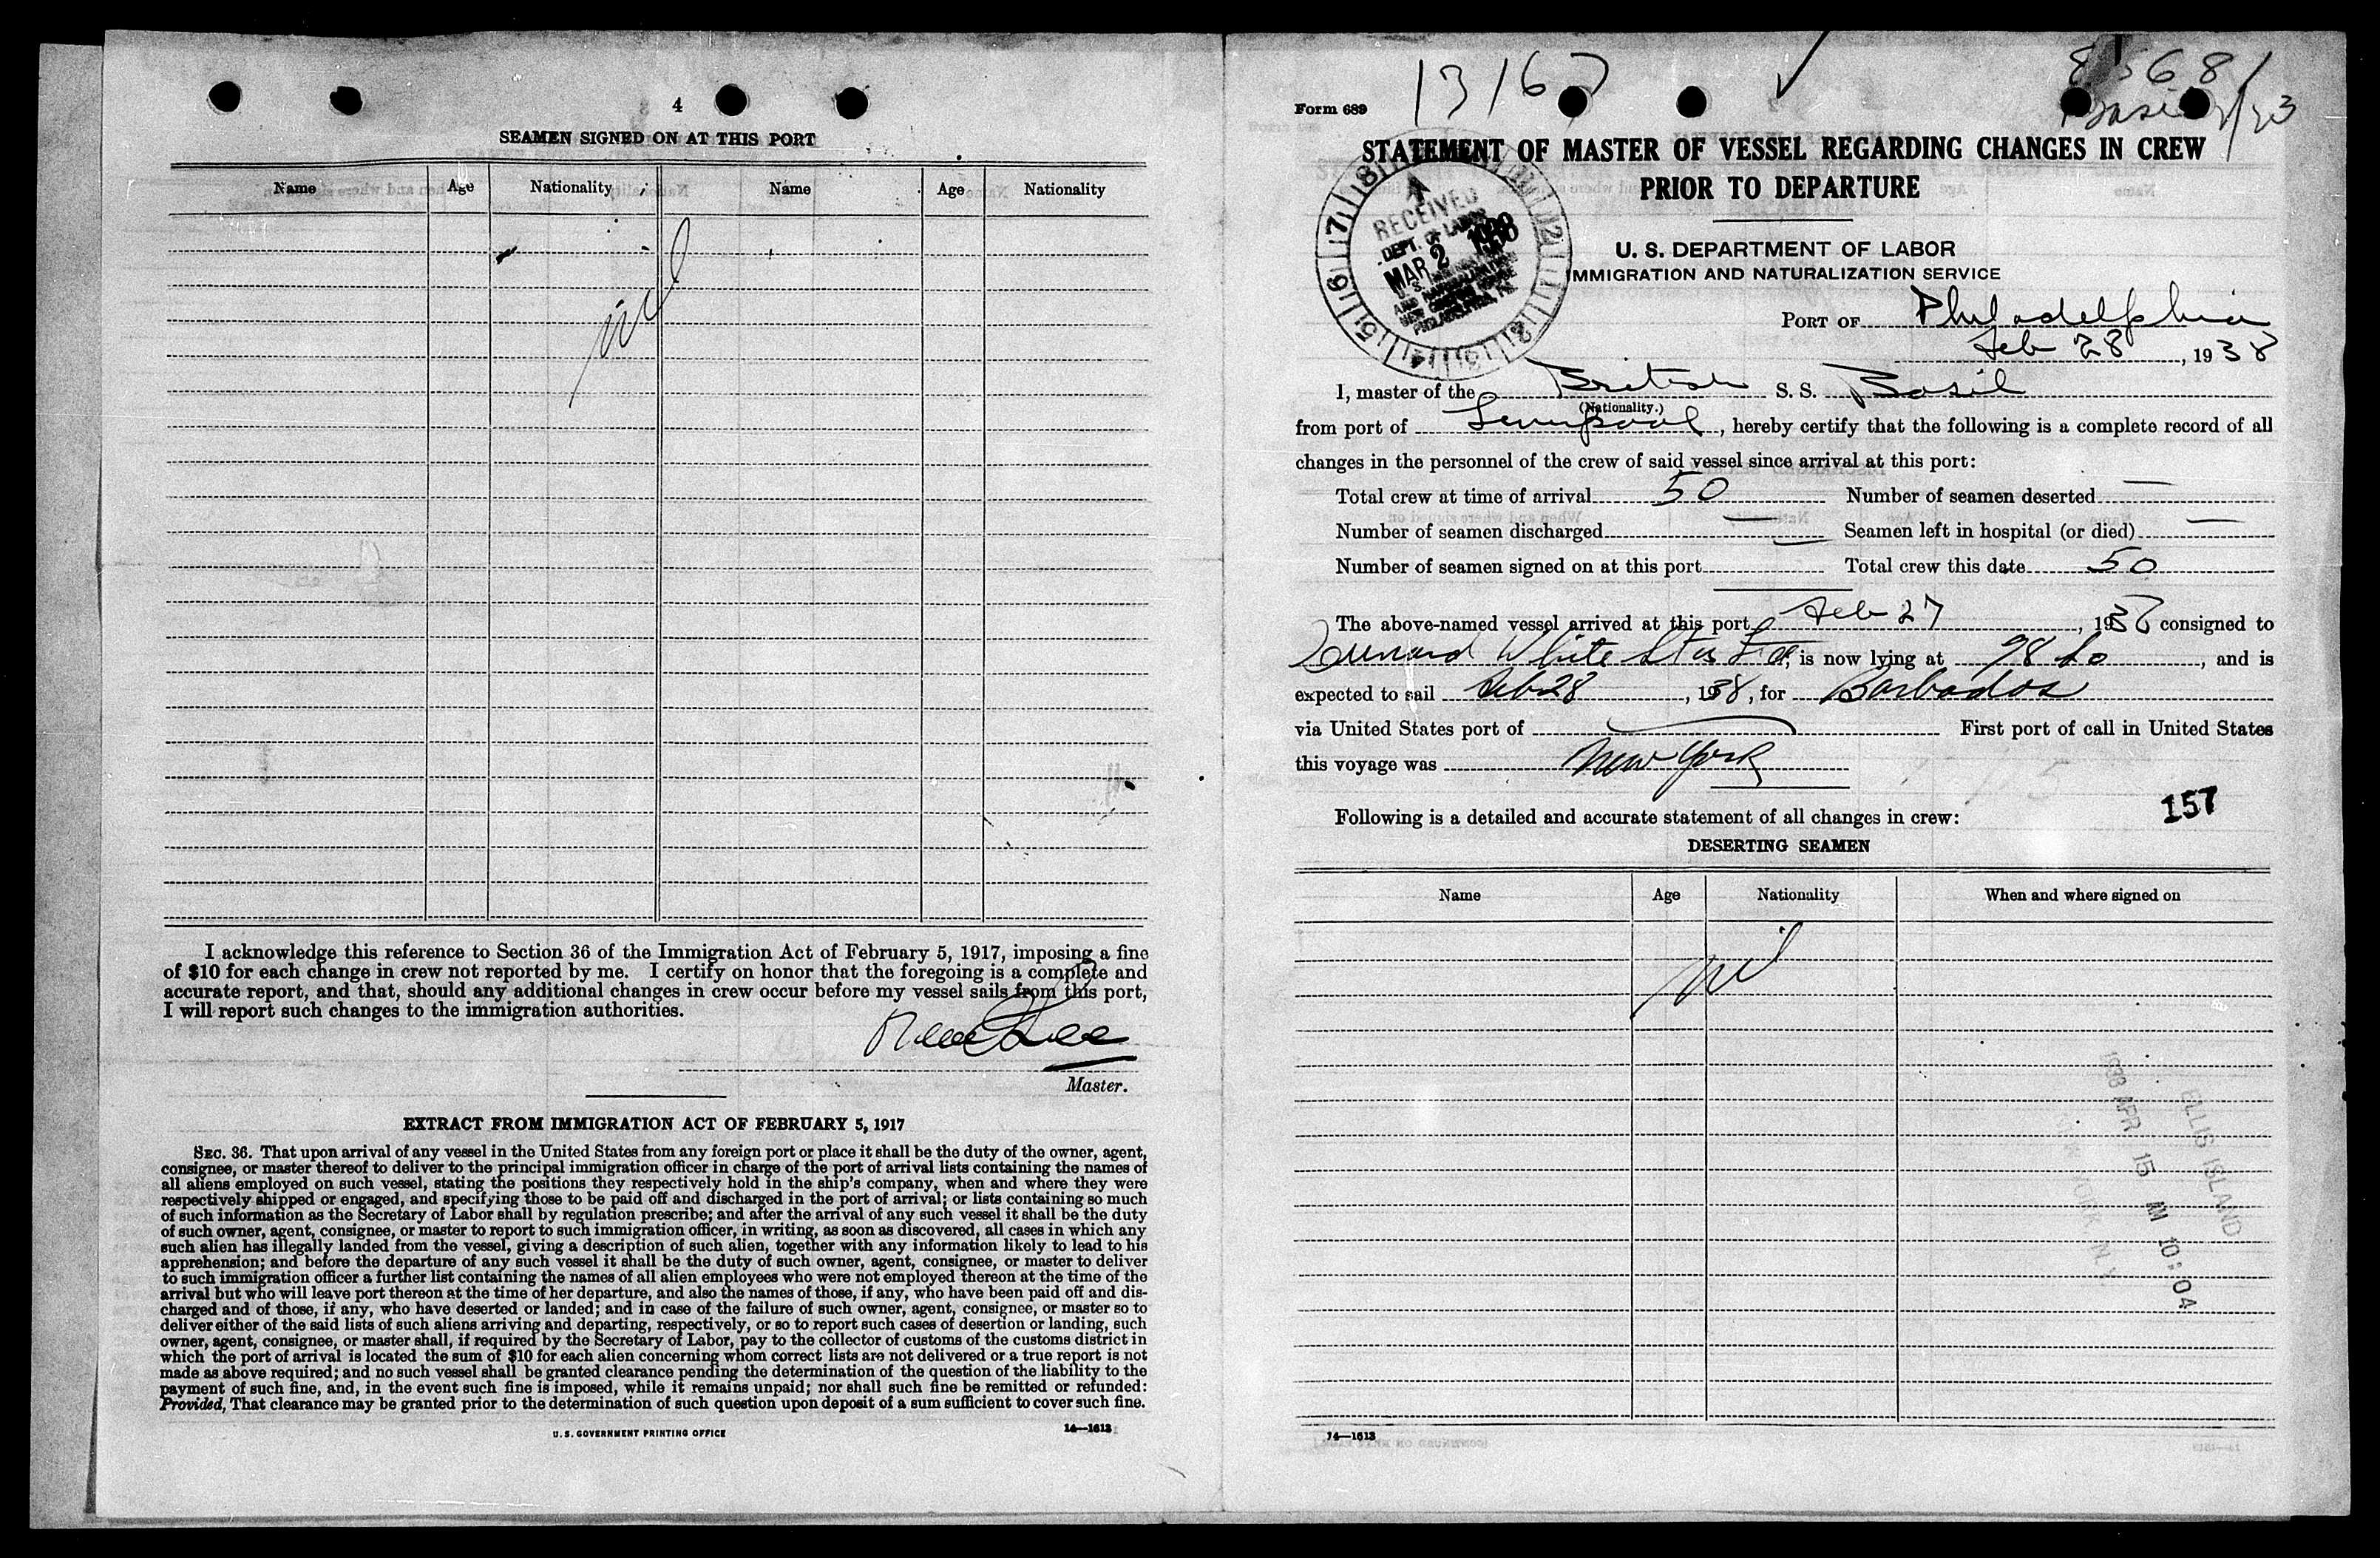 4
SEAMEN SIGNED ON AT THIS PORT
Name Age Nationality Name Age Nationality
nil
I acknowledge this reference to Section 36 of the Immigration Act of February 5, 1917, imposing a fine
of $10 for each change in crew not reported by me. I certify on honor that the foregoing is a complete and
accurate report, and that, should any additional changes in crew occur before my vessel sails from this port,
I will report such changes to the immigration authorities.
Master.
EXTRACT FROM IMMIGRATION ACT OF FEBRUARY 5, 1917
SEC. 36. That upon arrival of any vessel in the United States from any foreign port or place it shall be the duty of the owner, agent,
consignee, or master thereof to deliver to the principal immigration officer in charge of the port of arrival lists containing the names of
all aliens employed on such vessel, stating the positions they respectively hold in the ship's company, when and where they were
respectively shipped or engaged, and specifying those to be paid off and discharged in the port of arrival; or lists containing so much
of such information as the Secretary of Labor shall by regulation prescribe; and after the arrival of any such vessel it shall be the duty
of such owner, agent, consignee, or master to report to such immigration officer, in writing, as soon as discovered, all cases in which any
such alien has illegally landed from the vessel, giving a description of such alien, together with any information likely to lead to his
apprehension; and before the departure of any such vessel it shall be the duty of such owner, agent, consignee, or master to deliver
to such immigration officer a further list containing the names of all alien employees who were not employed thereon at the time of the
arrival but who will leave port thereon at the time of her departure, and also the names of those, if any, who have been paid off and dis-
charged and of those, if any, who have deserted or landed; and in case of the failure of such owner, agent, consignee, or master so to
deliver either of the said lists of such aliens arriving and departing, respectively, or so to report such cases of desertion or landing, such
owner, agent, consignee, or master shall, if required by the Secretary of Labor, pay to the collector of customs of the customs district in
which the port of arrival is located the sum of $10 for each alien concerning whom correct lists are not delivered or a true report is not
made as above required; and no such vessel shall be granted clearance pending the determination of the question of the liability to the
payment of such fine, and, in the event such fine is imposed, while it remains unpaid; nor shall such fine be remitted or refunded:
Provided, That clearance may be granted prior to the determination of such question upon deposit of a sum sufficient to cover such fine.
U. S. GOVERNMENT PRINTING OFFICE 14—1613
13167
Form 689
STATEMENT OF MASTER OF VESSEL REGARDING CHANGES IN CREW
PRIOR TO DEPARTURE
RECEIVED
DEPT. OF LABOR
MAR 2 1938
U. S. DEPARTMENT OF LABOR
IMMIGRATION AND NATURALIZATION SERVICE
PORT OF Philadelphia
Feb 28, 1938
I, master of the British S. S. Basil
(Nationality.)
from port of Liverpool, hereby certify that the following is a complete record of all
changes in the personnel of the crew of said vessel since arrival at this port:
Total crew at time of arrival 50 Number of seamen deserted —
Number of seamen discharged — Seamen left in hospital (or died) —
Number of seamen signed on at this port — Total crew this date 50
The above-named vessel arrived at this port Feb 27, 1938 consigned to
Cunard White Star Ltd, is now lying at 98 So, and is
expected to sail Feb 28, 1938, for Barbados
via United States port of — First port of call in United States
this voyage was New York
157
Following is a detailed and accurate statement of all changes in crew:
DESERTING SEAMEN
Name Age Nationality When and where signed on
nil
ELLIS ISLAND
1938 APR 15 AM 10:04
14—1613